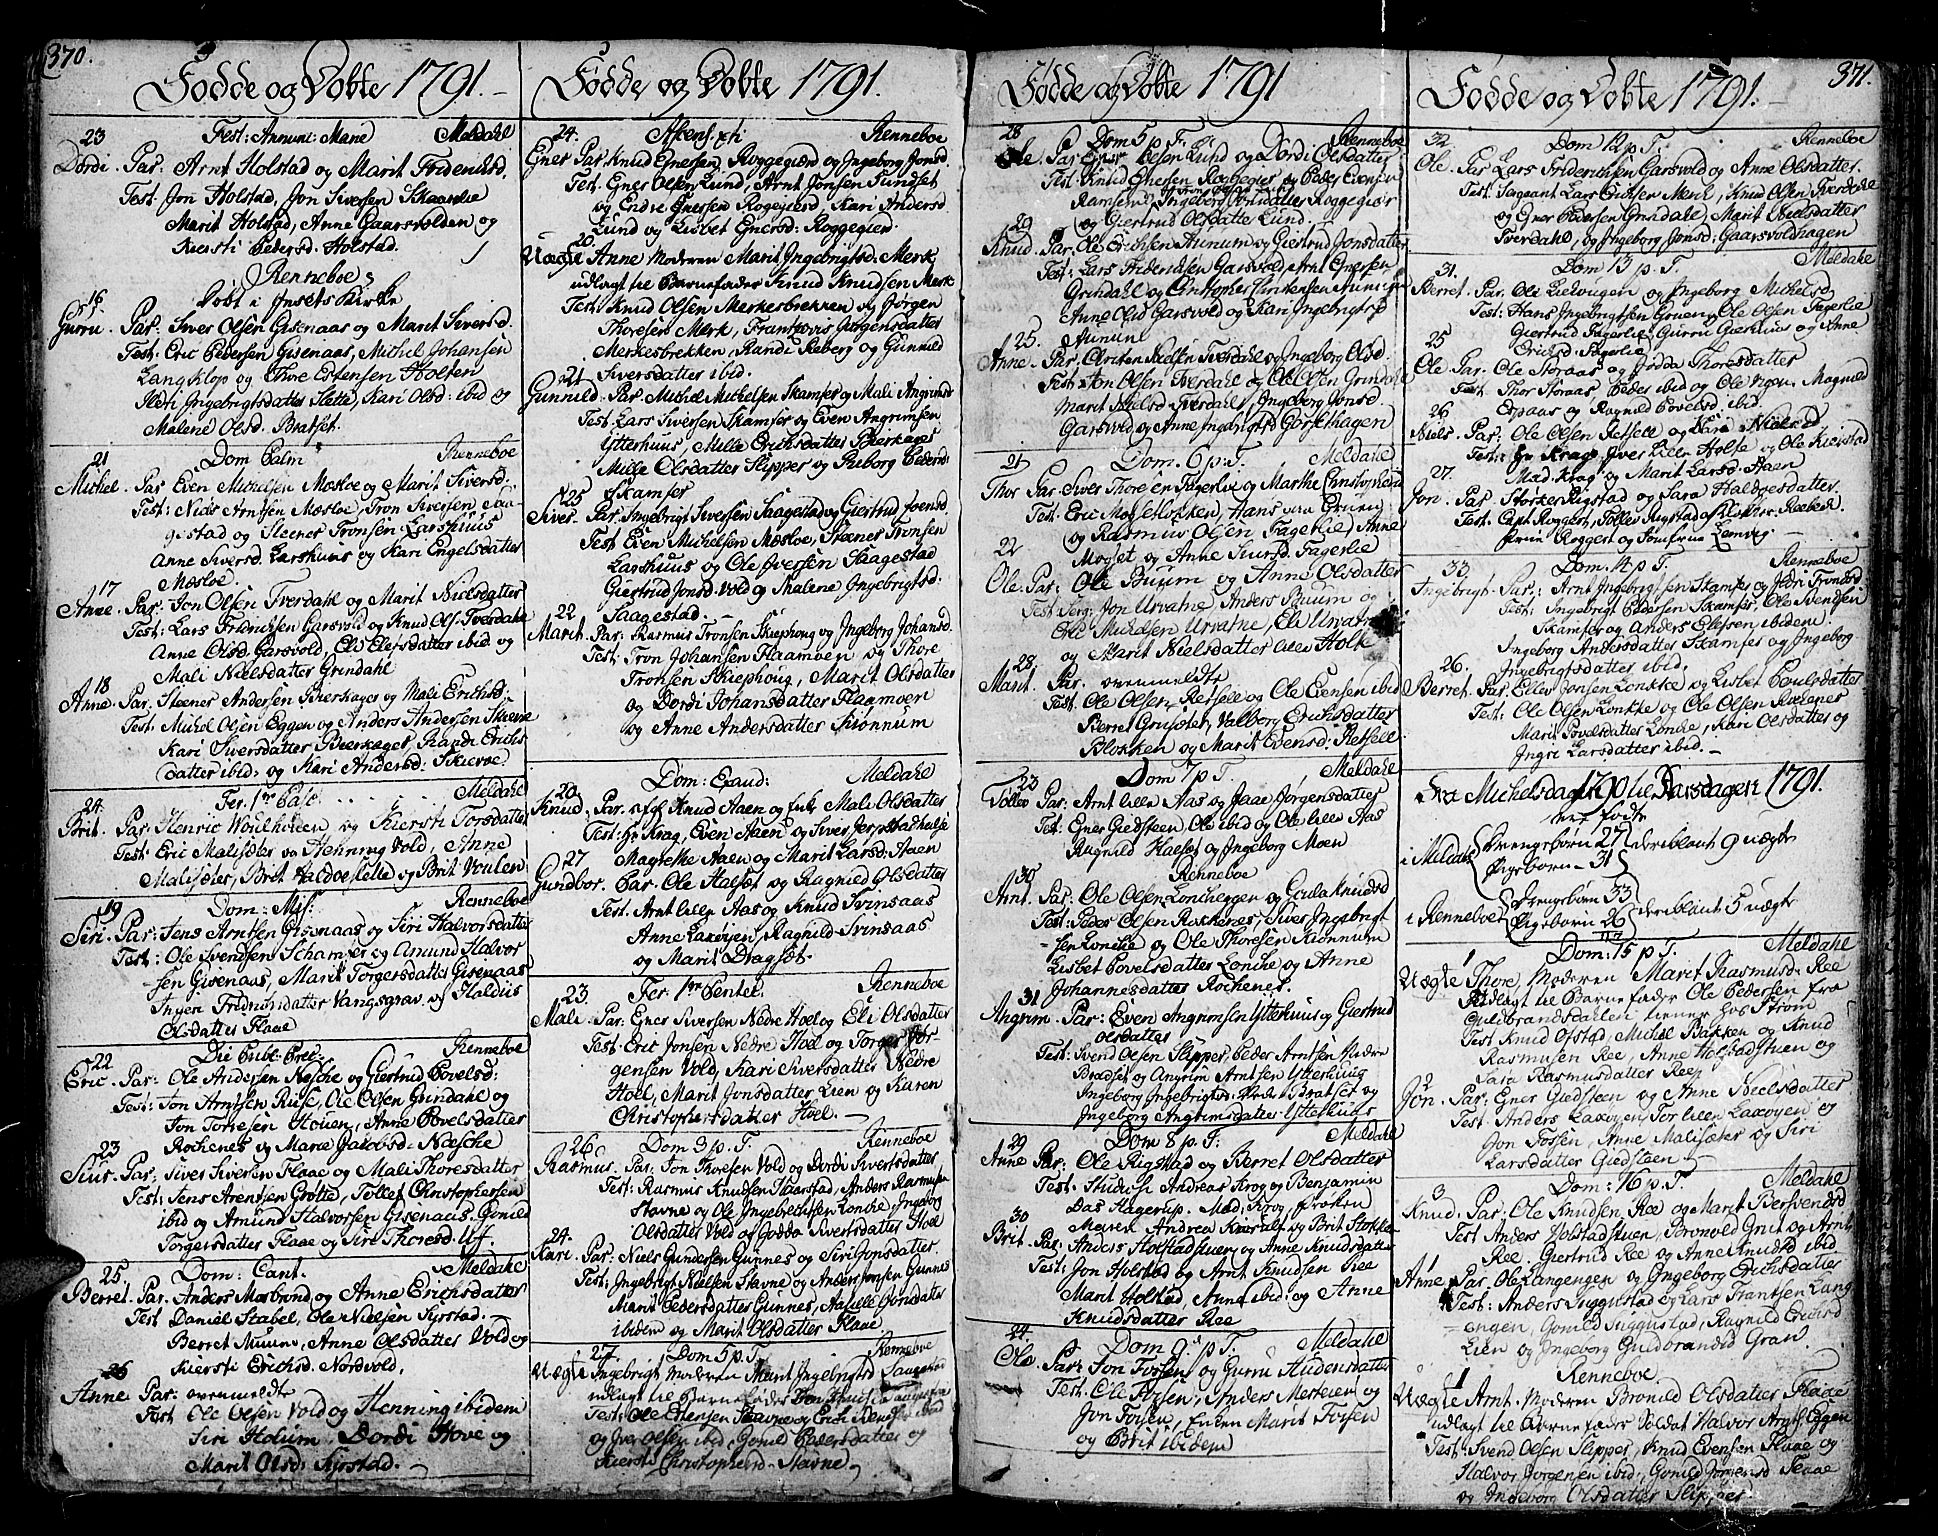 370.
Fødde og Døbte 1791.
23 Fest: Annunc: Mariæ Meldahl
Dordi. Par: Arnt Holstad og Marit Fridericsd.
Test: Jon Holstad, Jon Siversen Skaarlie
Marit Holstad, Anne Gaarsvolden og
Kiersti Pedersd. Holstad.
Renneboe
16 Døbt i Insets Kirke
Gurru. Par: Siver Olsen Gisenaas og Marit Siversd.
Test: Eric Pedersen Gisenaas, Michel Johansen
Langklop og Thore Estensen Holten
Ildri Ingebrigtsdatter Slette, Kari Olsd: ibid og
Malene Olsd. Bratset.
21 Dom Palm Renneboe
Michel. Par Even Michelsen Mæsloe og Marit Siversd.
Test: Niels Arntsen Mæsloe, Tron Siversen
gestad og Steener Tronsen Larshuus
Anne Siversd. Larshuus og Kari Engelsdatter
Mæsloe.
17
Anne. Par: Jon Olsen Tverdahl og Marit Nielsdatter
Test: Lars Fridricsen Garsvold og Knud Ols. Tverdahl
Anne Olsd. Garsvold, Eli Elefsdatter ibid og
Mali Nielsdatter Grindahl
18
Anne. Par. Steener Andersen Bierkager og Mali Erichsd:
Test: Michel Olsen Eggen og Anders Andersen Skierve
Kari Siversdatter Bierkager, Randi Erichs
datter ibid, og Kari Andersd: Skierve.
24. Fer. 1ma Pasc: Meldahl
Brit. Par: Henric Woulhoeen og Kiersti Torsdatter
Test: Eric Malisæter og Henning Vold, Anne
Malisæter, Brit Haldoeslette og Brit Voulen.
19 Dom: Mis: Renneboe
Siri. Par: Jens Arntsen Gisenaas og Siri Halvorsdatter
Test: Ole Svendsen Schamfer og Amund Halvor
sen Gisenaas, Marit Torgersdatter Gisenaas
Fridrichsdatter Vangsgrav og Haldiis
Olsdatter Flaae
22 Die Publ: Prec: Renneboe
Eric. Par: Ole Andersen Næsche og Giertrud Povelsd:
Test: Jon Arntsen Ruse, Ole Olsen Grindahl og
Jon Torresen Houen, Anne Povelsdatter
Rochenes og Marie Jakobsd: Næsche
23
Siur. Par: Siver Siversen Flaae og Mali Thoresdatter
Test: Jens Arentsen Grøtte, Tollef Christophersen
ibid og Amund Halvorsen Gisenaas. Gonild
Torgersdatter Flaae og Siri Thoresd. Uf.
25 Dom: Cant. Meldahl
Berret. Par. Anders Mosbrynd og Anne Erichsdatter
Test Daniel Stabel, Ole Nielsen Syrstad.
Berret Muun, Anne Olsdatter Vold og
Kiersti Erichsd. Nordvold.
26
Anne Par: ovenmeldte
Test Ole Olsen Vold og Henning ibidem
Siri Holum. Dordi Hove og
Marit Olsd: Syrstad.
Fødde og Døbte 1791.
24. Ascens: Xti Renneboe
Ener Par. Knud Enersen, Roggegierd og Ingeborg Jonsd.
Test. Ener Olsen Lund, Arnt Jonsen Sundset
og Endre Enersen Rogegierd. Kari Andersd
Lund og Lisbet Enersd: Roggegierd.
20.
Uægte Anne Moderen Marit Ingebrigtsd. Merk
udlagt til Barnefader Knud Knudsen Merk
Test: Knud Olsen Merkesbrekken og Jørgen
Thoresen Merk, Frantzvis Jørgensdatter
Merkesbrekken, Randi Reberg og Gunnild
Siversdatter ibid.
21
Gunnild Par: Michel Michelsen Skamfer og Mali Angrimsd
Test. Lars Siversen Skamfer og Even Angrimsen
Ytterhuus, Mille Erichsdatter Bierkager
Mille Olsdatter Slipper og Reborg Pedersd:
Skamfer
25
Siver. Par. Ingebrigt Siversen Saagestad og Giertrud Joensd
Test Even Michelsen Mæsloe, Steener Tronsen
Larshuus og Ole Iversen Saagestad
Giertrud Jonsd. Vold og Malene Ingebrigtsd:
Saagestad.
22
Marit. Par: Rasmus Tronsen Skiephoug og Ingeborg Johansd.
Test: Tron Johansen Flaamoen og Thore
Tronsen Skiephoug, Marit Olsdatter
og Dordi Johansdatter Flaamoen
og Anne Andersdatter Kvonnum
Dom: Exaud: Meldahl
20.
Knud. Par. Knud Aaen og Mali Olsdatter
Test: Hr Krag, Even Aaen, Siver
Magrethe Aaen og Marit Larsd: Aaen
27
Gundbor. Par. Ole Halset og Ragnild Olsdatter
Test: Arnt lille Aas og Knud Svinsaas
Anne Laxøyen, Ragnild Svinsaas
og Marit Dragset.
23. Fer. 1ma Pentec. Renneboe
Mali Par: Ener Siversen Nedre Hoel og Eli Olsdatter
Test: Eric Jonsen Nedre Hoel og Torger Jør-
gensen Vold, Kari Siversdatter Nedre
Hoel, Marit Jonsdatter Lien og Karen
Christophersdatter Hoel.
26 Dom 3 p. T. Renneboe
Rasmus. Par: Jon Thoresen Vold og Dordi Sivertsdatter
Test: Rasmus Knudsen Haarstad, Anders Rasmusen
Stavne og Ole Ingebrechtsen Lonche, Ingeborg
Olsdatter Vold og Godda Sivertsdatter Hoel
24.
Kari. Par: Niels Gundersen Gunnes og Siri Jonsdatter
Test: Ingebrigt Nielsen Stavne og Anders Jonsen Gunnes
Marit Pedersdatter Gunnes, Jonsdatter
ibidem og Marit Olsdatter Flaae
27. Dom 5 p. T. Renneboe
Uægte Ingebrigt Moderen Marit Ingebrigtsd
udlagt til Barnefader Jon Knudsen
Test: Ole Estensen Stavne og Erich
og Iver Olsen ibid, Gonild Pedersdatter og
Kierst Christophersd. Stavne.
Fødde og Døbte 1791
28 Dom 5 p. T. Renneboe
Ole. Par Ener Olsen Lund og Dordi Olsdatter
Test. Knud Enersen Roggegier og Peder Evensen
Ramsem, Ingeborg Jonsdatter Roggegier
og Giertrud Olsdatter Lund.
29
Knud. Par. Ole Erichsen Aunum og Giertrud Jonsdatter
Test: Lars Fridrichsen Garsvold, Arnt Enersen
Grindahl og Christopher Christensen Aunum
Anne Olsd Garsvold og Kari Ingebrigtsd
Aunum
25.
Anne. Par. Christen Nielsen Tverdahl og Ingeborg Olsd.
Test: Jon Olsen Tverdahl og Ole Olsen Grindahl
Marit Nielsd Tverdahl, Ingeborg Jonsd.
Garsvold og Anne Ingebrigtsd Garsethagen
21 Dom. 6 p. T. Meldahl
Thor Par. Siver Thoresen Fagerlie og Marthe Christophersd
Test. Eric Mosletløkken, Hans Gruen
og Rasmus Olsen Fagerlie, Anne
Moset og Anne Siursd. Fagerlie
22
Ole: Par: Ole Buum og Anne Olsdatter
Test. Jon Urvatne, Anders Buum og
Ole Michelsen Urvatne, Eli Urvatne
og Marit Nielsdatter lille Holte
28.
Marit. Par. ovenmeldte
Test. Ole Olsen Retselle og Ole Evensen ibid
Berret Grutseter, Valborg Erichsdatter
Blokken og Marit Evensd: Retselle.
23 Dom 7 p. T. Meldahl
Tollev Par: Arnt lille Aas og Jaae Jørgensdatter
Test: Ener Giedsteen, Ole ibid og Ole lille Aas
Ragnild Halset og Ingeborg Moen
Renneboe
30
Arnt. Par: Ole Olsen Loncheggen og Goula Knudsd
Test: Peder Olsen Rockenes, Siver Ingebrigt
sen Lonche og Ole Thoresen Kvonnum
Lisbet Povelsdatter Lonche og Anne
Johannesdatter Rochenes.
31
Angrim. Par: Even Angrimsen Ytterhuus og Giertrud
Olsdatter
Test: Svend Olsen Slipper, Peder Arntsen Nedre
Brædset og Angrim Arntsen Ytterhuus
Ingeborg Ingebrigtsd: Nedre Bratset og
Ingeborg Angrimsdatter Ytterhuus
29 Dom 8 p. T: Meldahl
Anne Par: Ole Rigstad og Berret Olsdatter
Test. Studiosi Andreas Krog og Benjamin
Das Hagerup. Mad. Krog, Frøken
Maren Andrea og Brit Stokke
30
Brit. Par: Anders Holstadstuen og Anne Knudsdatter
Test: Jon Holstad og Arnt Knudsen Ree
Marit Holstad, Anne ibid: og Anne
Knudsdatter Ree
24. Dom 9 p. T. Meldahl
Ole. Par: Jon Forsen og Gurru Audensdatter
Test: Ole Forsen, Anders Mesteren og
Jon Forsen, Enken Marit Forsen
og Brit ibidem
371.
Fødde og Døbte 1791.
32 Dom 12 p. T. Renneboe
Ole. Par Lars Friderichsen Garsvold og Anne Olsdatter.
Test. Sargeant Lars Erichsen Merk, Knud Olsen Tverdahl
og Ener Pedersen Grindahl, Marit Nielsdatter
Tverdahl, og Ingeborg Jonsd: Gaarsvoldhagen
31. Dom 13 p. T. Meldahl
Berret. Par. Ole Lielvugen og Ingeborg Michelsd
Test: Hans Ingebrigtsen Gruen, Ole Olsen Fagerlie
Giertrud Fagerlie, Gurru Gierhuus og Anne
Erichsd. Fagerlie
25
Ole Par. Ole Storaas og Jødda Thoresdatter
Test. Thor Storaas Peder ibid og Ole Magnild
Espaas og Ragnild Povelsd. ibid.
26
Niels. Par: Ole Olsen Retselle og Nielsd
Test: Hr Krag, Iver lille Holte og Ole Kierstad
Mad. Krag og Marit Larsd. Aaen
27.
Jon. Par Storker Rigstad og Sara Haldoesdatter
Test. Capt. Roggert, Tollev Rigstad
Frue Roggert og Jomfrue Lemvig
33 Dom. 14 p. T. Renneboe
Ingebrigt Par: Arnt Ingebrigtsen Skamfer og Ildri Tronsd.
Test: Ingebrigt Pedersen Skamfer, Ole Svendsen
Skamfer og Anders Elefsen ibidem.
Ingeborg Andersdatter Skamfer og Ingeborg
Ingebrigtsdatter ibid.
26.
Berret. Par. Ellev Jonsen Lonkke og Lisbet Poulsdatter
Test: Ole Olsen Lonkke og Ole Olsen Rockenes
Marit Povelsdatter Lonke, Kari Olsdatter og
Ingri Larsdatter ibid.
Fra Michelsdag 1790 til Aarsdagen 1791.
ere fødte
i Meldahl Drengebørn 27 Pigebørn 31 deriblant 9 uægte
i Renneboe Drengebørn 33 Pigebørn 26 deriblant 5 uægte
117
Dom: 15 p. T. Meldahl
1
Uægte Thore, Moderen Marit Rasmusd: Ree
Udlagt til Barnefader Ole Pedersen fra
Guldbrandsdalen tiener hos Strøm
Test Knud Ofstad, Michel Bakken og Knud
Rasmusen Ree, Anne Holstadstuen og
Sara Rasmusdatter Ree
2
Jon. Par: Ener Giedsteen og Anne Nielsdatter
Test: Anders Laxøyen, Tor lille Laxøyen og
Jon Fossen, Anne Malisæter og Siri
Larsdatter Giedsteen
3 Dom: 16 p. T. Meldahl
Knud. Par: Ole Knudsen Ree og Marit Bersvendsd
Test Anders Holstadstuen, Bronvold Grut og Arnt
Ree Giertrud Ree og Anne Knudsd ibid
1
Anne Par. Ole Langengen og Ingeborg Erichsdatter
Test: Anders Suggustad og Lars Frantsen Lang
engen, Gonild Suggustad, Ragnild Ericksd
Lien og Ingeborg Guldbrandsd Gran.
1 Renneboe.
Uægte Arnt. Moderen Bronild Olsdatter Flaae
udlagt til Barnefader Soldat Halvor Arnts. Eggen
Test: Svend Olsen Slipper, Knud Evensen Flaae og
Halvor Jørgensen ibid:, Gonild Jørgensd Flaae
og Ingeborg Olsdatter Slipper.